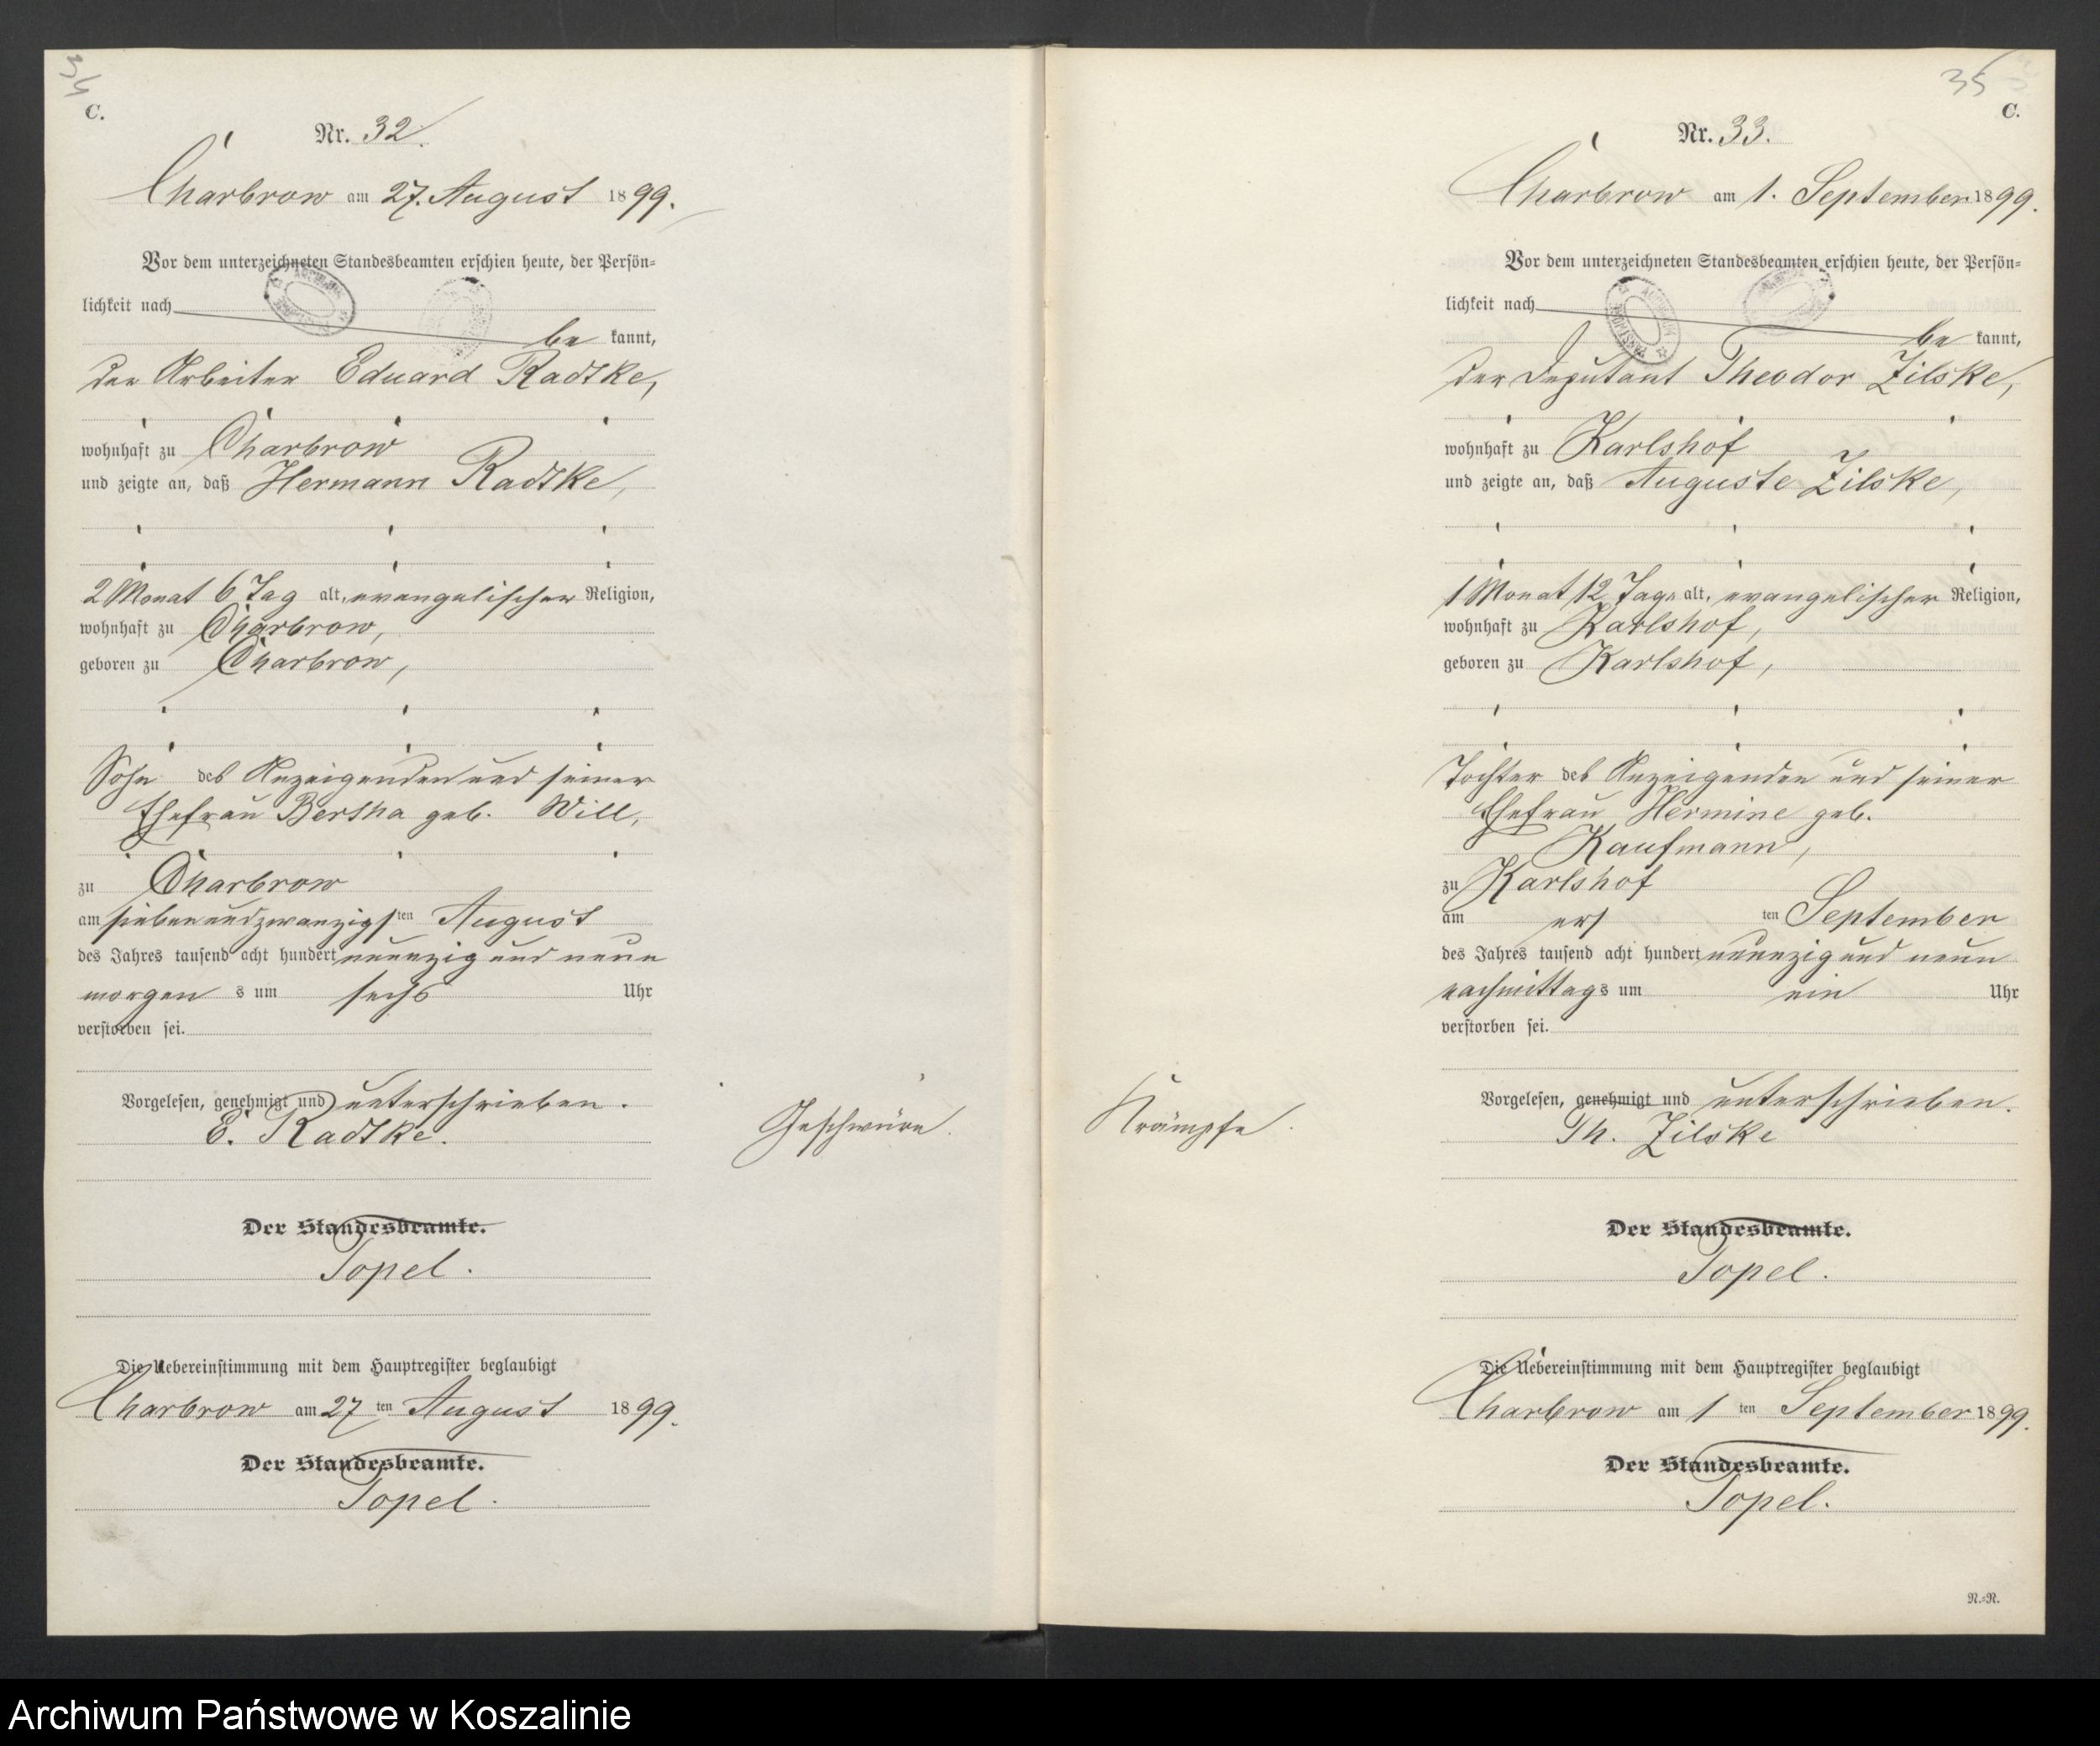 34
C.
Nr. 32.
Charbrow am 27. August 1899.
Vor dem unterzeichneten Standesbeamten erschien heute, der Persön-
lichkeit nach
be kannt,
der Arbeiter Eduard Radtke,
wohnhaft zu Charbrow
und zeigte an, daß Hermann Radtke,
2 Monat 6 Tag alt, evangelischer Religion,
wohnhaft zu Charbrow,
geboren zu Charbrow,
Sohn des Anzeigenden und seiner
Ehefrau Bertha geb. Will,
zu Charbrow
am siebenundzwanzigsten August
des Jahres tausend acht hundert neunzig und neun
morgens um sechs Uhr
verstorben sei.
Vorgelesen, genehmigt und unterschrieben.
E. Radtke.
Geschwüre.
Der Standesbeamte.
Topel.
Die Uebereinstimmung mit dem Hauptregister beglaubigt
Charbrow am 27ten August 1899.
Der Standesbeamte.
Topel.
35
C.
Nr. 33.
Charbrow am 1. September 1899.
Vor dem unterzeichneten Standesbeamten erschien heute, der Persön-
lichkeit nach
be kannt,
der Deputant Theodor Zilske,
wohnhaft zu Karlshof
und zeigte an, daß Auguste Zilske,
1 Monat 12 Tage alt, evangelischer Religion,
wohnhaft zu Karlshof,
geboren zu Karlshof,
Tochter des Anzeigenden und seiner
Ehefrau Hermine geb.
Kaufmann,
zu Karlshof
am ersten September
des Jahres tausend acht hundert neunzig und neun
nachmittags um ein Uhr
verstorben sei.
Vorgelesen, genehmigt und unterschrieben.
Th. Zilske
Krämpfe.
Der Standesbeamte.
Topel.
Die Uebereinstimmung mit dem Hauptregister beglaubigt
Charbrow am 1ten September 1899.
Der Standesbeamte.
Topel.
N.=N.
Archiwum Państwowe w Koszalinie